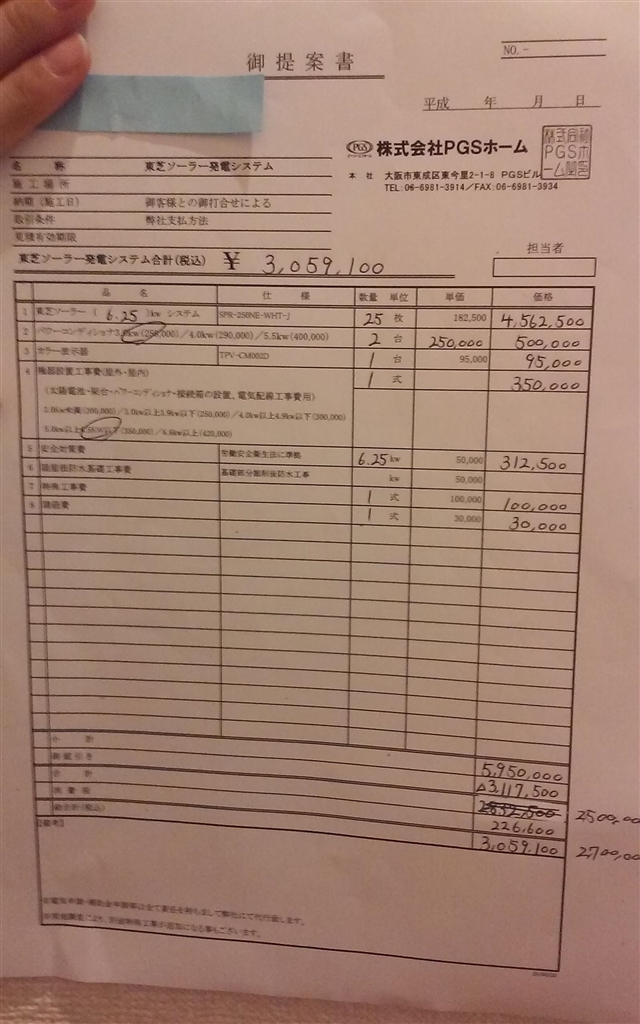 御提案書
NO. -
平成 年 月 日
PGS 株式会社PGSホーム
本社 大阪市東成区東今里2-1-8 PGSビル
TEL:06-6981-3914/FAX:06-6981-3934
名称 東芝ソーラー発電システム
施工場所
納期(施工日) 御客様との御打合せによる
取引条件 弊社支払方法
見積有効期限
東芝ソーラー発電システム合計(税込) ¥ 3,059,100
担当者
品名 仕様 数量 単位 単価 価格
1 東芝ソーラー ( 6.25 )kw システム SPR-250NE-WHT-J 25 枚 182,500 4,562,500
2 パワーコンディショナ3.0kw(250,000)/4.0kw(290,000)/5.5kw(400,000) 2 台 250,000 500,000
3 カラー表示器 TPV-CM002D 1 台 95,000 95,000
4 機器設置工事費(屋外・屋内) 1 式 350,000
(太陽電池・架台・パワーコンディショナ・接続箱の設置、電気配線工事費用)
3.0kw未満(200,000)/3.0kw以上3.9kw以下(250,000)/4.0kw以上4.9kw以下(300,000)
5.0kw以上 以下(350,000)/6.6kw以上(420,000)
5 安全対策費 労働安全衛生法に準拠 6.25 kw 50,000 312,500
6 防水基礎工事費 基礎部分 防水工事 kw 50,000
7 特殊工事費 1 式 100,000 100,000
8 諸経費 1 式 30,000 30,000
小計 5,950,000
値引き △3,117,500
合計 2832,500 2500,00
消費税 226,600
総合計(税込) 3,059,100 2700,00
【備考】
※電気申請・補助金申請等は全て責任を持ちまして弊社にて代行致します。
※現地調査により、別途特殊工事が追加になる事もございます。